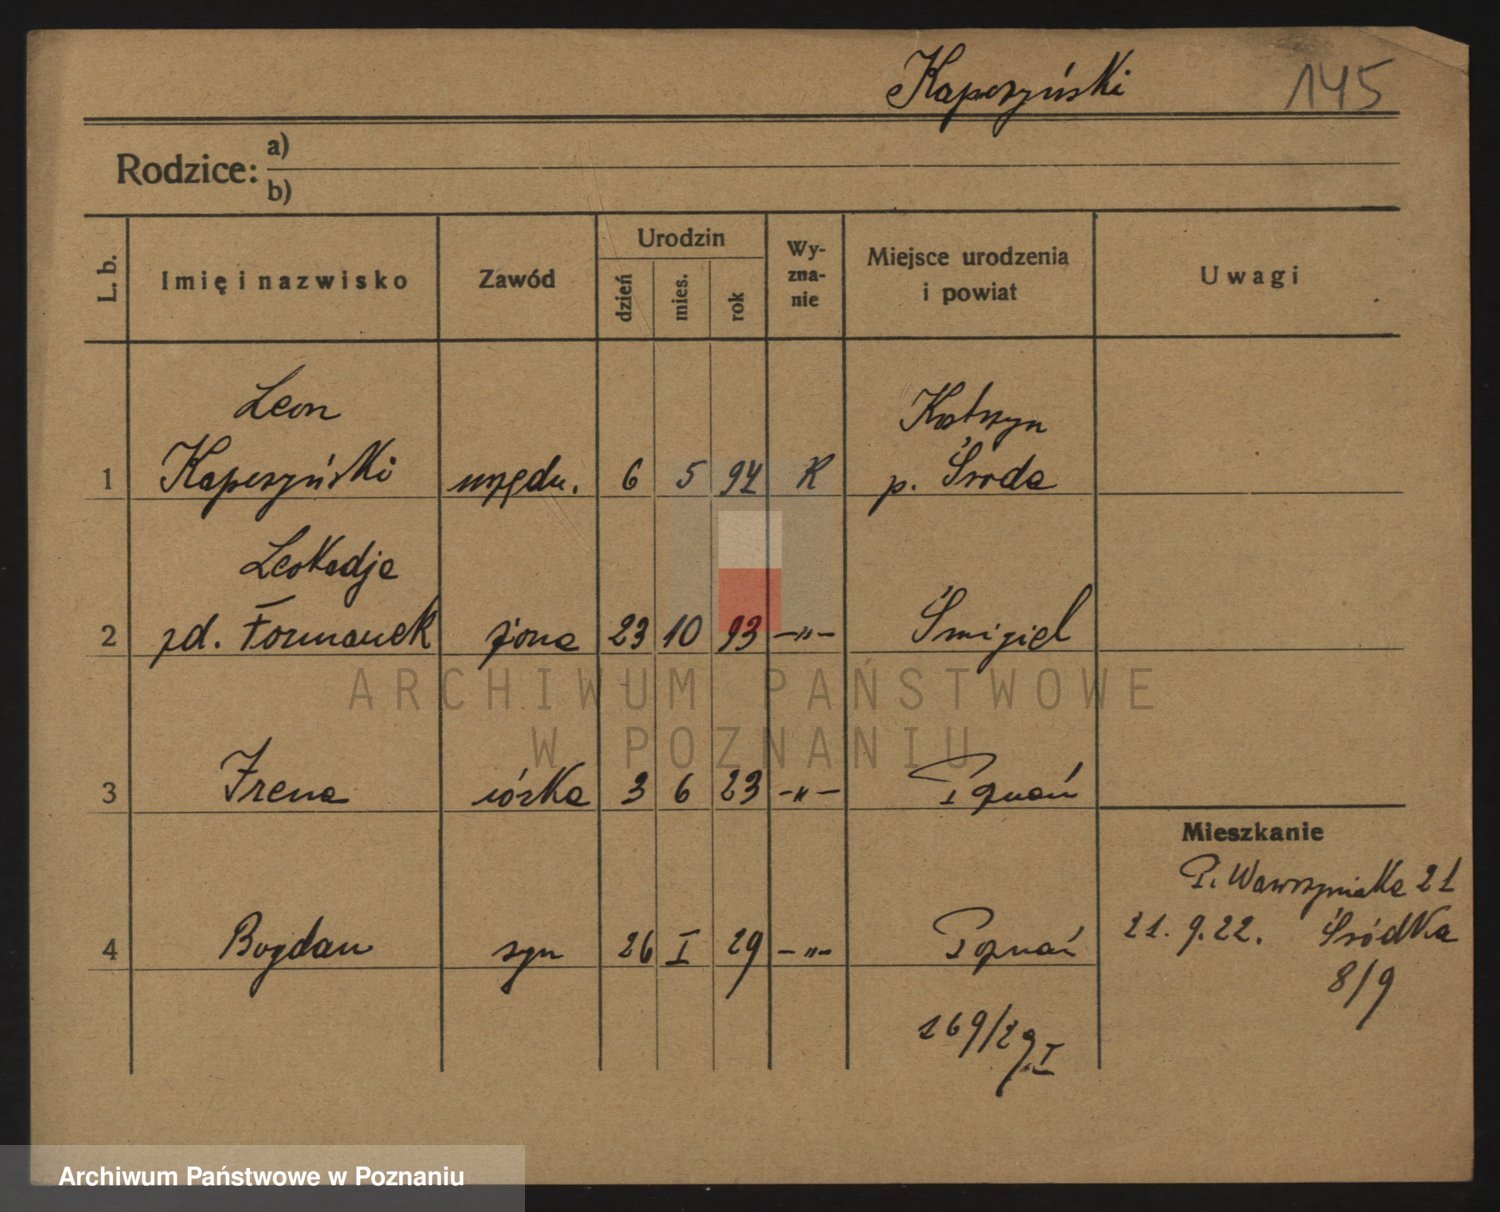 Kapczyński 145
Rodzice: a)
b)
L. b. Imię i nazwisko Zawód Urodzin dzień mies. rok Wy-zna-nie Miejsce urodzenia i powiat Uwagi
Leon Kostrzyn
1 Kapczyński urzędn. 6 5 94 K p. Środa
Leokadja
2 zd. Formanek żona 23 10 93 -"- Śmigiel
3 Irena córka 3 6 23 -"- Poznań
Mieszkanie
P. Wawrzyniaka 21
21. 9. 22. Śródka
4 Bogdan syn 26 I 29 -"- Poznań
8/9
169/29.I
ARCHIWUM PAŃSTWOWE
W POZNANIU
Archiwum Państwowe w Poznaniu